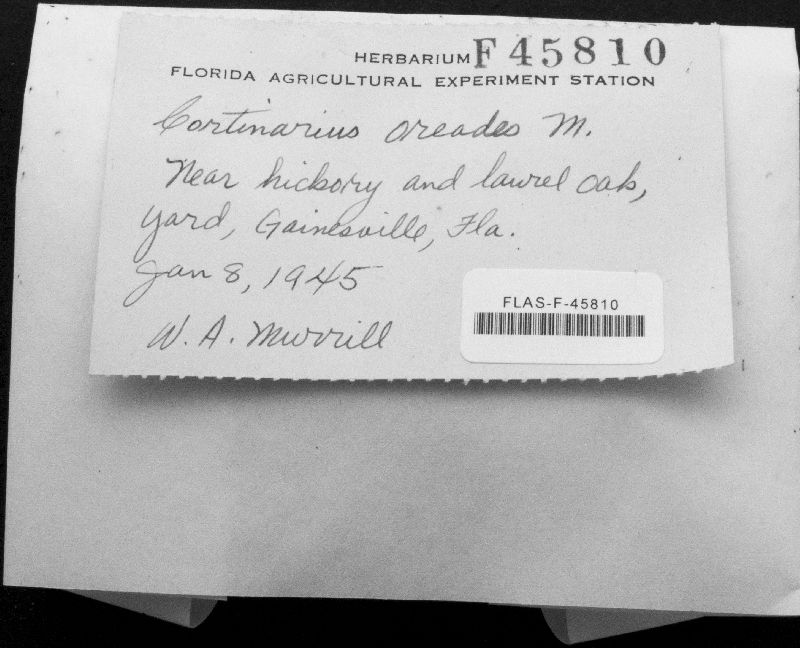 HERBARIUM F45810
FLORIDA AGRICULTURAL EXPERIMENT STATION
Cortinarius oreades M.
Near hickory and laurel oak,
yard, Gainesville, Fla.
Jan 8, 1945
FLAS-F-45810
W. A. Murrill